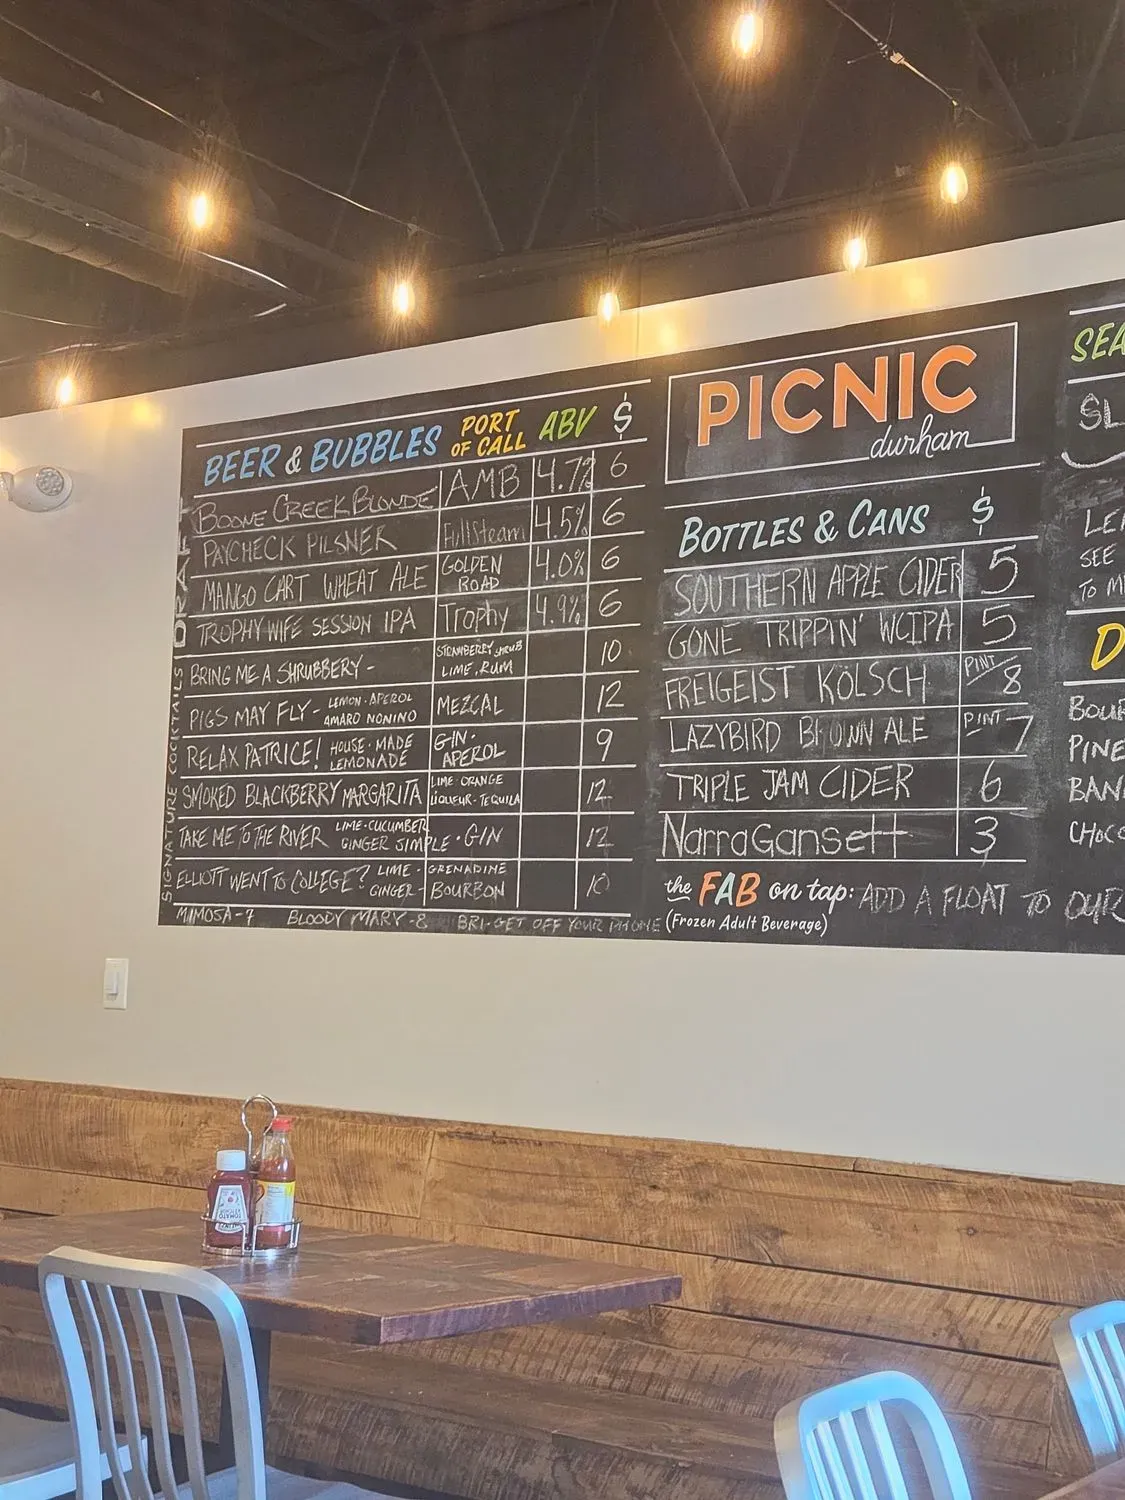 BEER & BUBBLES PORT OF CALL ABV $
DRAFT
BOONE CREEK BLONDE AMB 4.7% 6
PAYCHECK PILSNER Fullsteam 4.5% 6
MANGO CART WHEAT ALE GOLDEN ROAD 4.0% 6
TROPHY WIFE SESSION IPA Trophy 4.9% 6
SIGNATURE COCKTAILS
BRING ME A SHRUBBERY - STRAWBERRY SHRUB LIME, RUM 10
PIGS MAY FLY - LEMON · APEROL AMARO NONINO MEZCAL 12
RELAX PATRICE! HOUSE · MADE LEMONADE GIN · APEROL 9
SMOKED BLACKBERRY MARGARITA LIME · ORANGE LIQUEUR · TEQUILA 12
TAKE ME TO THE RIVER LIME · CUCUMBER GINGER SIMPLE · GIN 12
ELLIOTT WENT TO COLLEGE? LIME - GINGER - GRENADINE BOURBON 10
MIMOSA - 7 BLOODY MARY - 8 BRI - GET OFF YOUR PHONE
PICNIC
durham
BOTTLES & CANS $
SOUTHERN APPLE CIDER 5
GONE TRIPPIN' WCIPA 5
FREIGEIST KÖLSCH PINT 8
LAZYBIRD BROWN ALE PINT 7
TRIPLE JAM CIDER 6
NarraGansett 3
the FAB on tap: ADD A FLOAT TO OUR
(Frozen Adult Beverage)
SEA
SL
LE
SEE
TO M
D
BOUR
PINE
BAN
CHOC
TOMATO KETCHUP